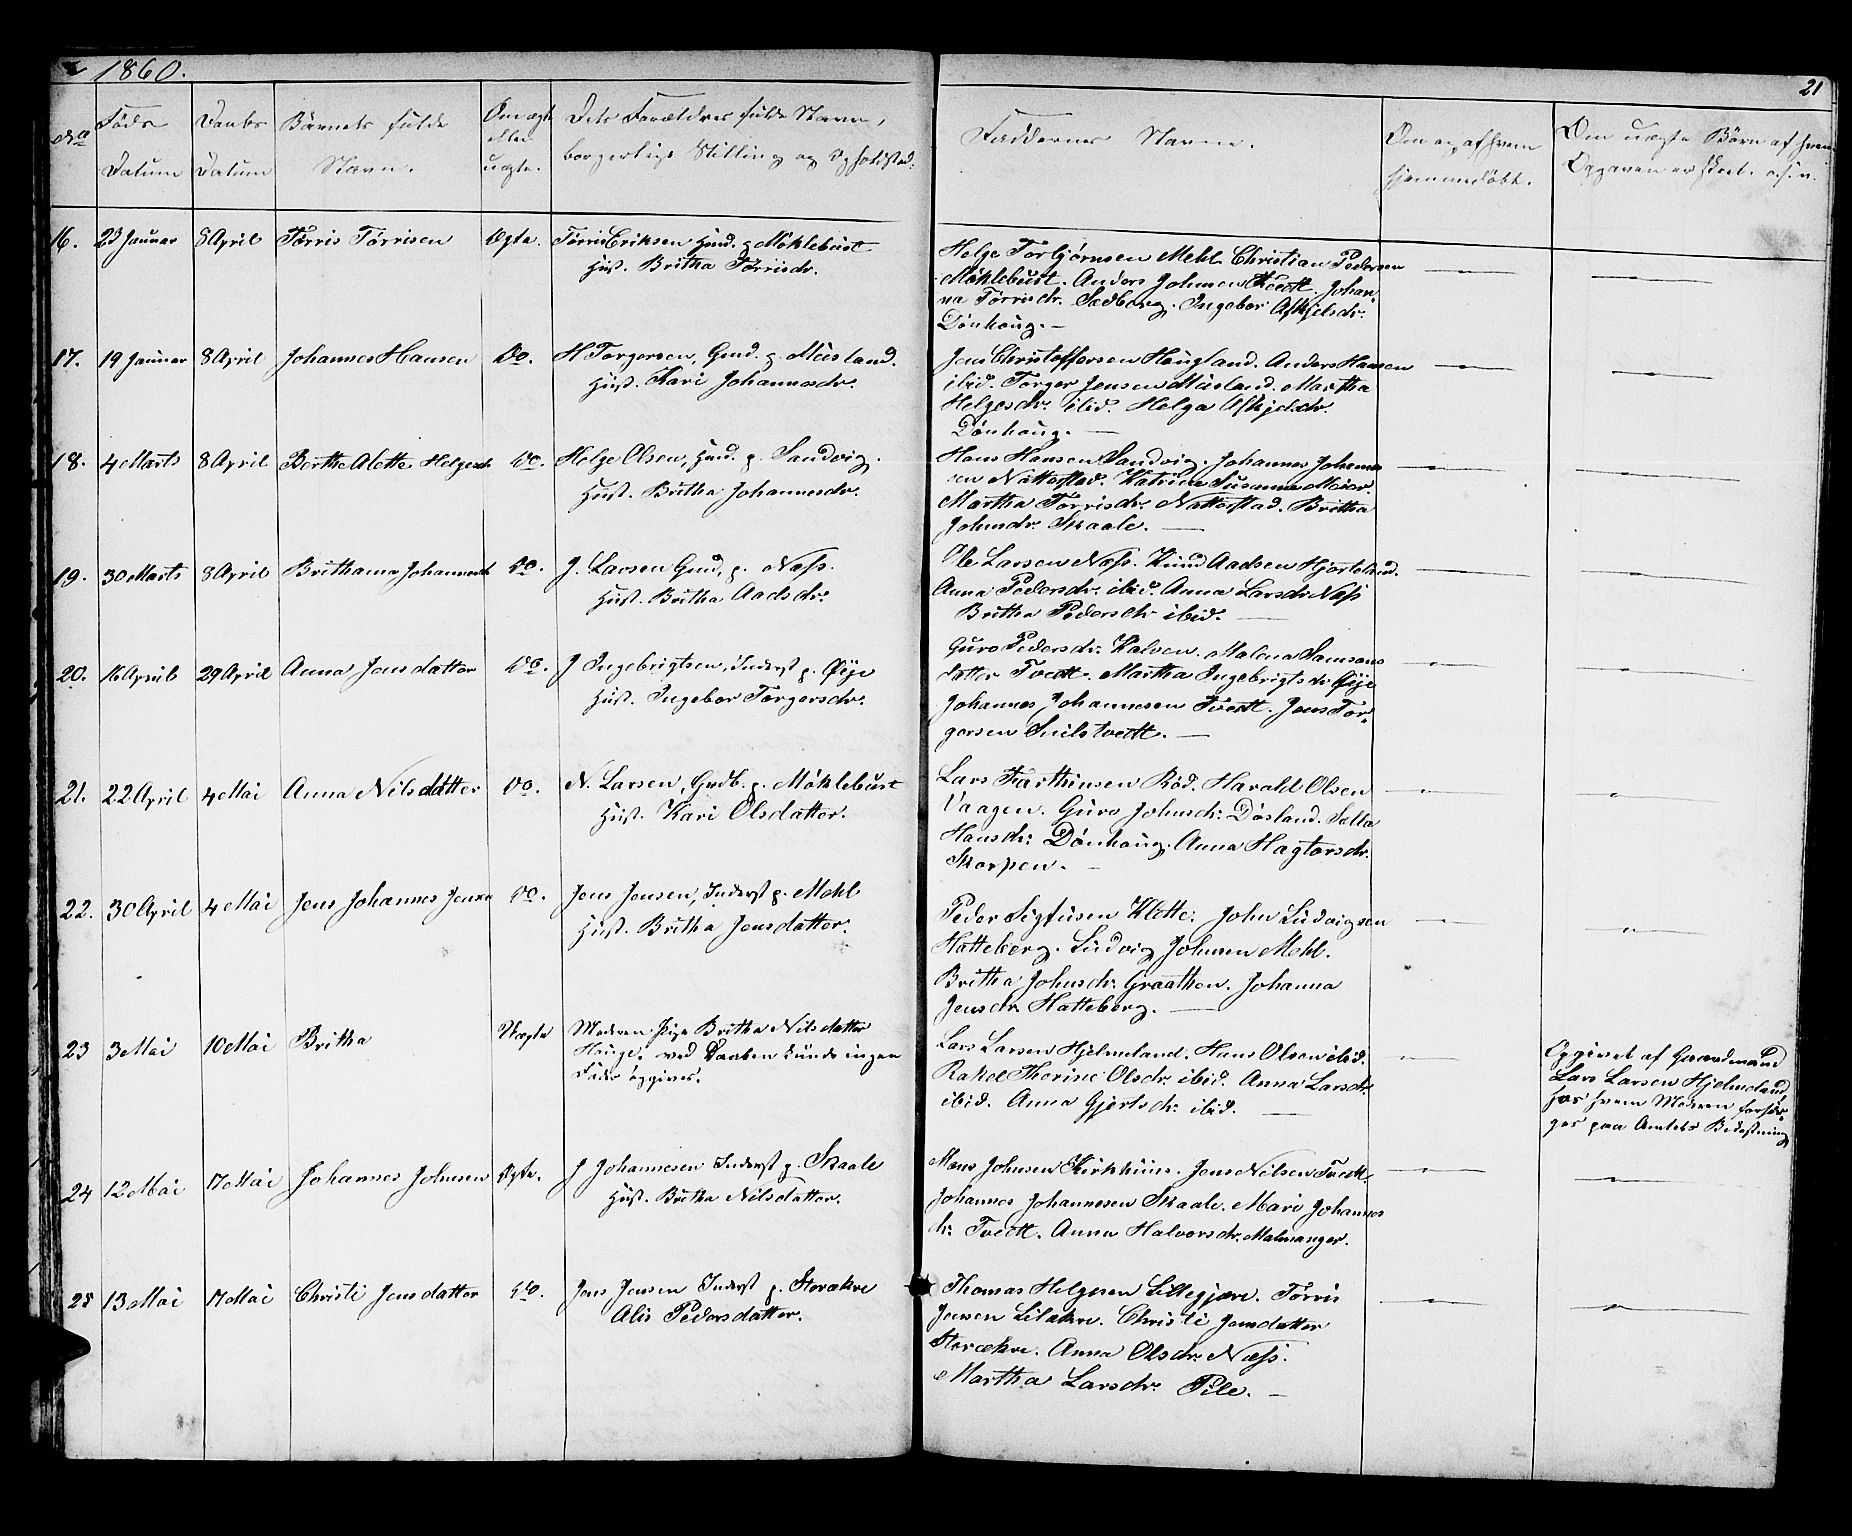 1860.
21
No
Føds
Datum
Daabs
Datum
Barnets fulde
Navn.
Om ægte
eller
uægte.
Dets Forældres fulde Navn,
borgerlige Stilling og Opholdsted.
Faddernes Navne.
Om og af hvem
hjemmedøbt.
Om uægte Børn af hvem
Opgaven er skeet o.s.v.
16. 23 Januar 8 April Tørris Tørrisen Ægte. Tørris Eriksen Huusd. p. Möklebust
Hust. Britha Tørrisdr.
Helge Torbjørnsen Mehl. Christian Pedersen
Möklebust. Anders Johnsen Tvedt. Johan¬
na Tørrisdr. Sædberg. Ingebor Askjelsdr.
Dönhaug. —
17. 19 Januar 8 April Johannes Hansen Do. H Torgersen, Gmd. p. Müsland.
Hust. Kari Johannesdr.
Jens Christoffersen Haugland. Anders Hansen
ibid. Torger Jensen Müsland. Martha
Helgesdr. ibid. Helga Askjelsdr.
Dönhaug. —
18. 4 Marts 8 April Berthe Alette Helgesdr Do. Helge Olsen, Huusd. p. Sandvig.
Hust. Britha Johannesdr.
Hans Hansen Sandvig. Johannes Johannes
sen Nattestad. Katrina Susanna Meier.
Martha Tørrisdr. Nattestad. Britha
Johnsdr. Skaale. —
19. 30 Marts 8 April Brithanna Johannesdr Do. J. Larsen Gmd, p. Næss.
Hust. Britha Aadsdr.
Ole Larsen Næss. Knud Aadsen Hjorteland.
Anna Pedersdr. ibid. Anna Larsdr Næss
Britha Pedersdr ibid. —
20. 16 April 29 April Anna Jensdatter Do. J Ingebrigtsen, Inderst p. Øije
Hust. Ingebor Torgersdr.
Guro Pedersdr. Kalven. Malena Samsons
datter Tvedt. Martha Ingebrigtsdr Øije
Johannes Johannesen Tvedt. Jens Tor¬
gersen Snilstvedt. —
21. 22 April 4 Mai Anna Nilsdatter Do. N. Larsen, Grdb. p. Möklebust
Hust. Kari Olsdatter.
Lars Farthinsen Röd. Harald Olsen
Vaagen. Guro Johnsdr. Døsland. Sella
Hansdr. Dönhaug. Anna Hagtorsdr.
Skorpen. —
22. 30 April 4 Mai Jens Johannes Jensen Do. Jens Jensen, Inderst p. Mehl
Hust. Britha Jensdatter.
Peder Sigfusen Klette. John Ludvigsen
Hatteberg. Ludvig Johnsen Mehl.
Britha Johnsdr. Graathen. Johanna
Jensdr. Hatteberg. —
23 3 Mai 10 Mai Britha Uægte Moderen Pige Britha Nilsdatter
Hauge. ved Daaben kunde ingen
Fader opgives.
Lars Larsen Hjelmeland. Hans Olsen ibid.
Rakel Therine Olsdr. ibid. Anna Larsdr.
ibid. Anna Gjertsdr. ibid. —
Opgivet af Gaardmand
Lars Larsen Hjelmeland
hos hvem Moderen forsør¬
ges paa Amtets Bekostning
24 12 Mai 17 Mai Johannes Johnsen Ægte. J Johannesen Inderst p. Skaale
Hust. Britha Nilsdatter.
Mons Johnsen Kirkhuus. Jens Neilsen Tvedt.
Johannes Johannesen Skaale. Mari Johannes
dr. Tvedt. Anna Halvorsdr. Malmanger.
25 13 Mai 17 Mai Christi Jensdatter Do. Jens Jensen Inderst p. Storækre
Alis Pedersdatter.
Thomas Helgesen Lillegjære. Tørris
Jensen Lilækre. Christi Jensdatter
Storækre. Anna Olsdr. Næss.
Martha Larsdr. Pile. —